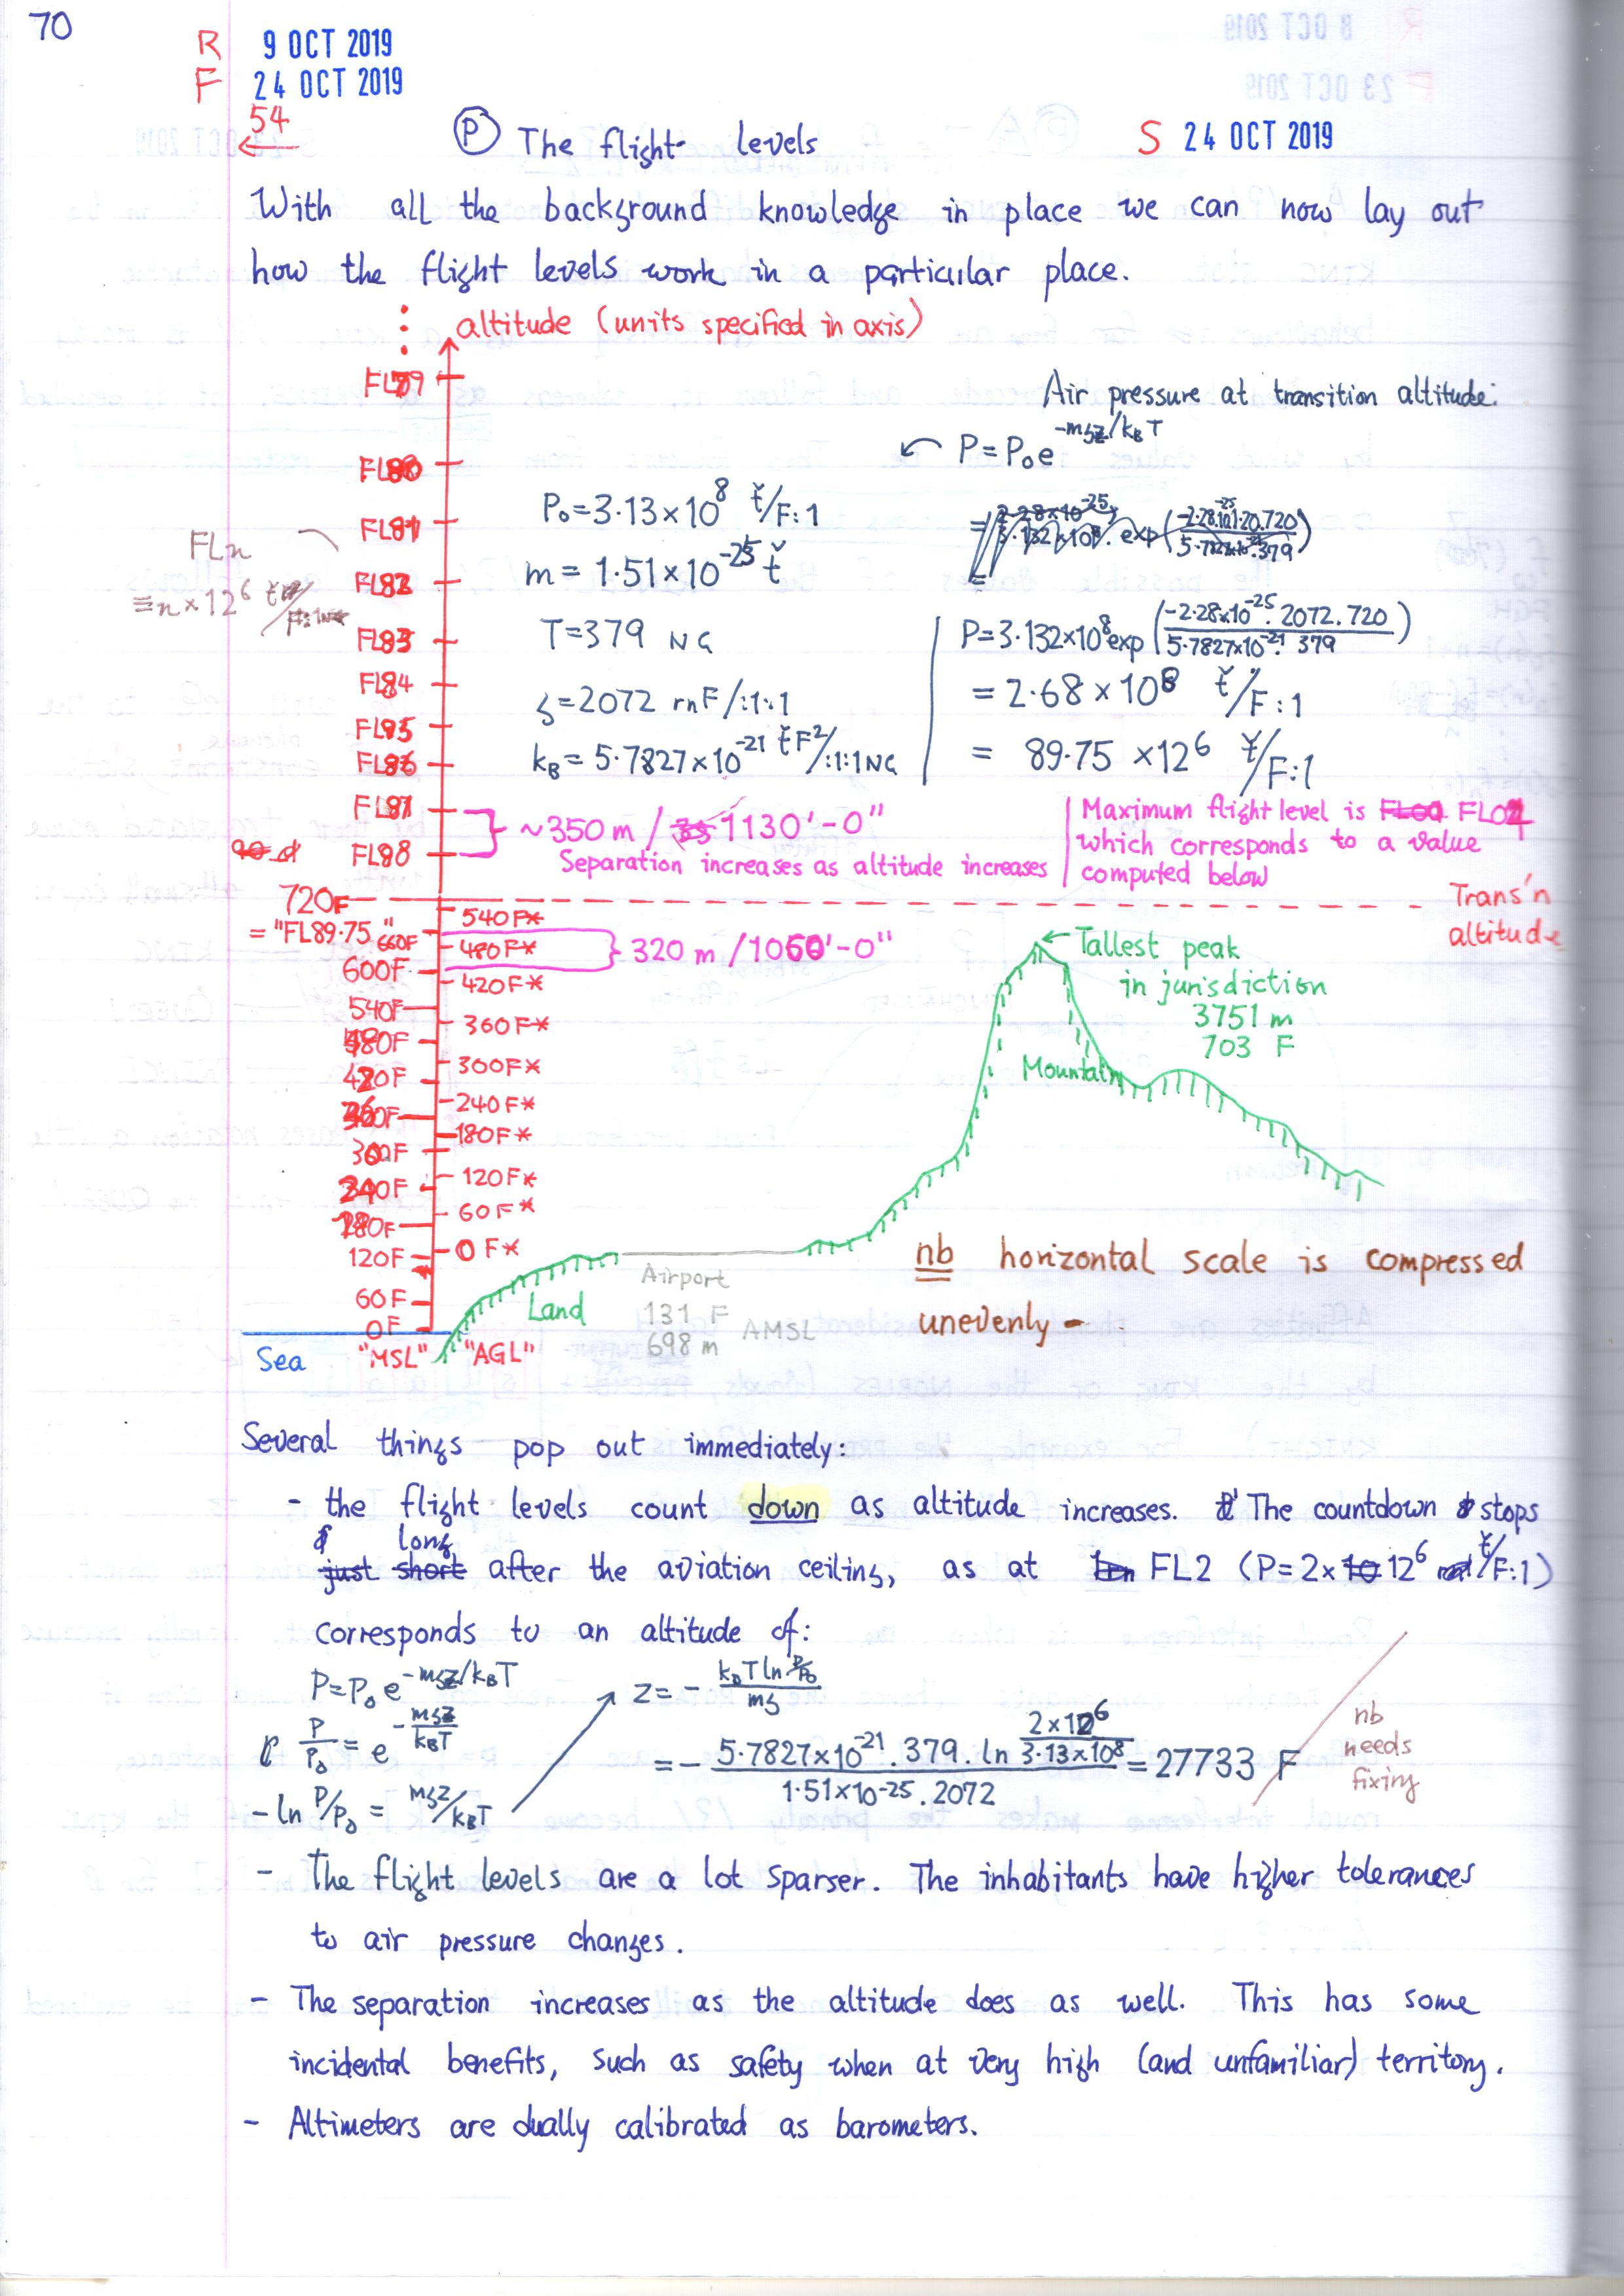 70
R 9 OCT 2019
F 24 OCT 2019
54
P The flight levels
S 24 OCT 2019
With all the background knowledge in place we can now lay out
how the flight levels work in a particular place.
altitude (units specified in axis)
FL79
FL80
FL81
FL82
FL83
FL84
FL85
FL86
FL87
FL88
FLn
≡n×12⁶
Air pressure at transition altitude:
P=P₀e^(-mgz/k_BT)
P₀=3.13×10⁸ ť/F:1
m=1.51×10⁻²⁵ ť
T=379 NG
g=2072 rnF/:1:1
k_B=5.7827×10⁻²¹ ťF²/:1:1NG
P=3.132×10⁸exp(-2.28×10⁻²⁵.2072.720/5.7827×10⁻²¹.379)
=2.68×10⁸ ť/F:1
= 89.75 ×12⁶ ť/F:1
~350 m / 1130'-0"
Separation increases as altitude increases
Maximum flight level is
which corresponds to a value
computed below
720F
= "FL89.75"
Trans'n
altitude
660F
600F
540F
480F
420F
360F
300F
240F
180F
120F
60F
0F
540F*
480F*
420F*
360F*
300F*
240F*
180F*
120F*
60F*
0F*
320 m /1050'-0"
Tallest peak
in jurisdiction
3751 m
703 F
Mountain
Airport
131 F
698 m
AMSL
Land
Sea
"MSL"
"AGL"
nb horizontal scale is compressed
unevenly -
Several things pop out immediately:
- the flight levels count down as altitude increases. The countdown stops
long
just short after the aviation ceiling, as at FL2 (P=2×12⁶ ť/F:1)
corresponds to an altitude of:
P=P₀e^(-mgz/k_BT)
P/P₀=e^(-mgz/k_BT)
-ln P/P₀ = mgz/k_BT
z=- k_BT ln P/P₀ / mg
=- 5.7827×10⁻²¹.379.ln (2×12⁶/3.13×10⁸) / 1.51×10⁻²⁵.2072 =27733 F
nb
needs
fixing
- The flight levels are a lot sparser. The inhabitants have higher tolerances
to air pressure changes.
- The separation increases as the altitude does as well. This has some
incidental benefits, such as safety when at very high (and unfamiliar) territory.
- Altimeters are dually calibrated as barometers.